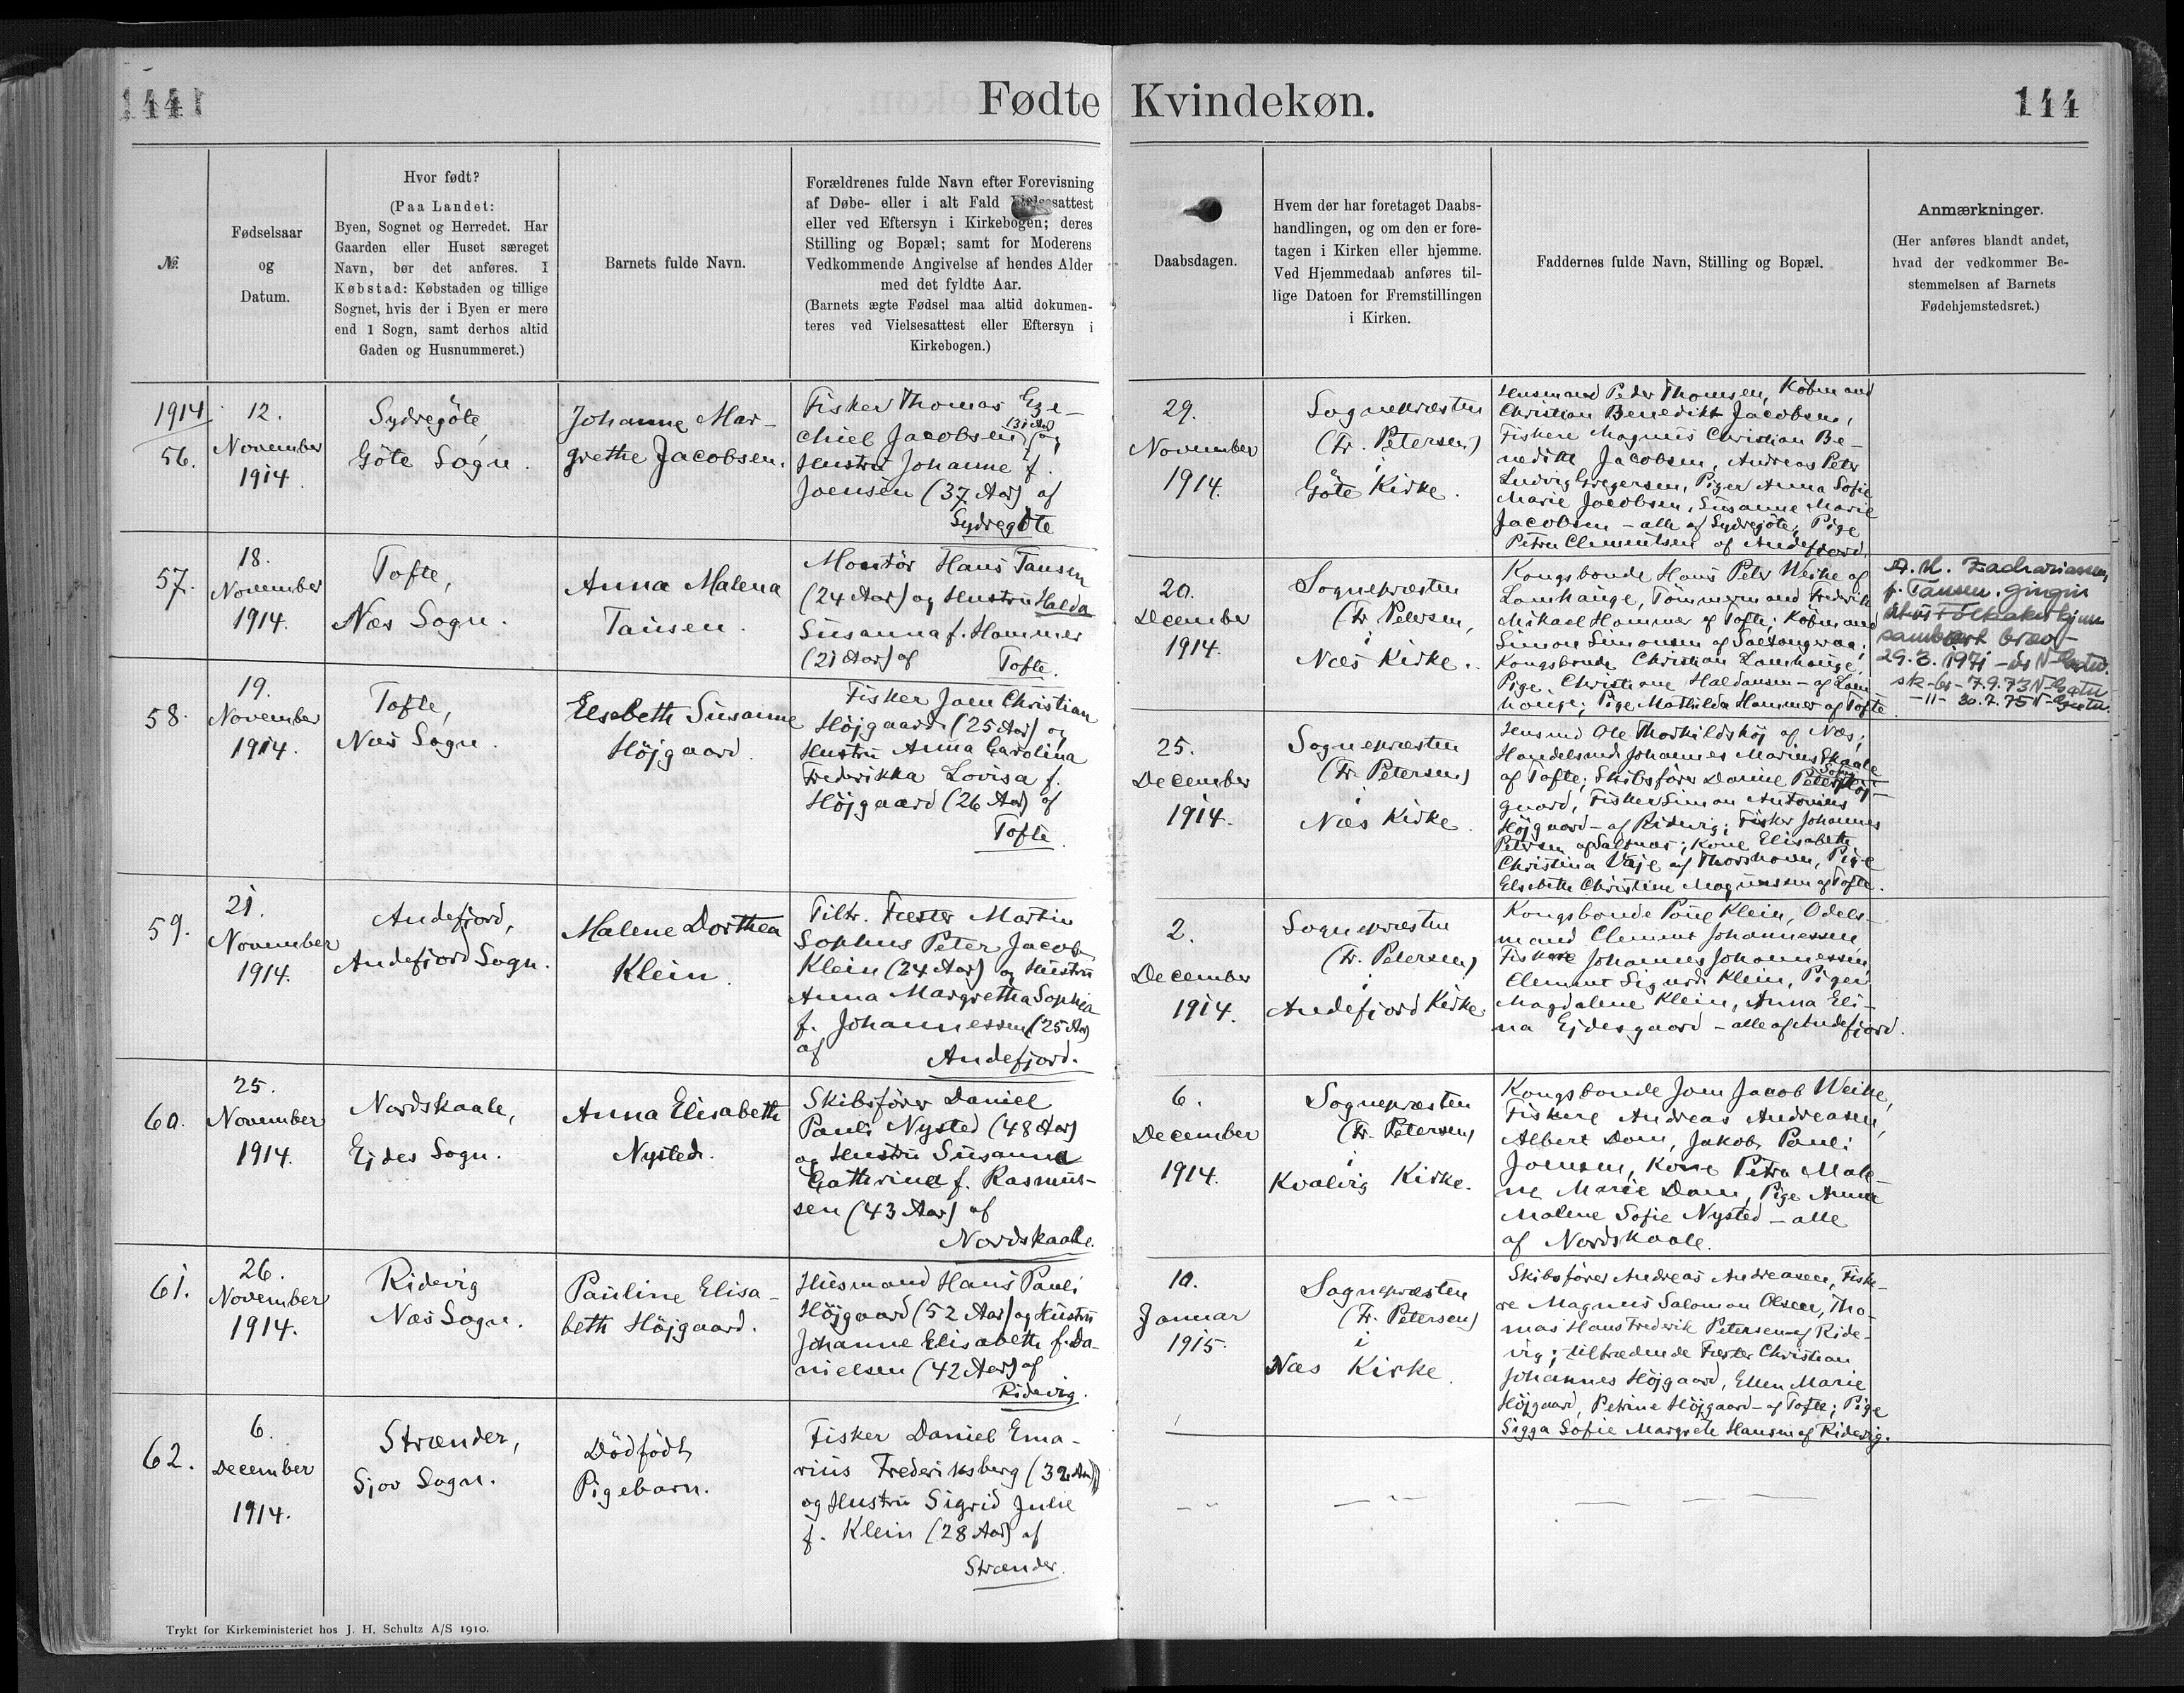 1441
Fødte Kvindekøn.
144
№.
Fødselsaar
og
Datum.
Hvor født?
(Paa Landet:
Byen, Sognet og Herredet. Har
Gaarden eller Huset særeget
Navn, bør det anføres. I
Købstad: Købstaden og tillige
Sognet, hvis der i Byen er mere
end 1 Sogn, samt derhos altid
Gaden og Husnummeret.)
Barnets fulde Navn.
Forældrenes fulde Navn efter Forevisning
af Døbe- eller i alt Fald Vielsesattest
eller ved Eftersyn i Kirkebogen; deres
Stilling og Bopæl; samt for Moderens
Vedkommende Angivelse af hendes Alder
med det fyldte Aar.
(Barnets ægte Fødsel maa altid dokumen-
teres ved Vielsesattest eller Eftersyn i
Kirkebogen.)
Daabsdagen.
Hvem der har foretaget Daabs-
handlingen, og om den er fore-
tagen i Kirken eller hjemme.
Ved Hjemmedaab anføres til-
lige Datoen for Fremstillingen
i Kirken.
Faddernes fulde Navn, Stilling og Bopæl.
Anmærkninger.
(Her anføres blandt andet,
hvad der vedkommer Be-
stemmelsen af Barnets
Fødehjemstedsret.)
1914
56.
12.
November
1914.
Sydregöte,
Göte Sogn.
Johanne Mar-
grethe Jacobsen.
Fisker Thomas Eze-
chiel Jacobsen (31 Aar) og
Hustru Johanne f.
Joensen (37 Aar) af
Sydregöte
29.
November
1914.
Sognepræsten
(Fr. Petersen)
i
Göte Kirke.
Husmand Peder Thomsen, Köbmand
Christian Benedikt Jacobsen,
Fiskere Magnus Christian Be-
nedikt Jacobsen, Andreas Peter
Ludvig Gregersen, Piger Anna Sofie
Marie Jacobsen, Susanne Marie
Jacobsen - alle af Sydregöte, Pige
Petra Clementsen af Andefjord.
57.
18.
November
1914.
Tofte,
Næs Sogn.
Anna Malena
Tausen.
Montör Hans Tausen
(24 Aar) og Hustru Halda
Susanna f. Hammer
(21 Aar) af
Tofte.
20.
December
1914.
Sognepræsten
(Fr. Petersen,
i
Næs Kirke.
Kongsbonde Hans Peter Weihe af
Lamhauge, Tömmermand Frederik
Mikael Hammer af Tofte; Köbmand
Simon Simonsen af Saltangeraa;
Kongsbonde Christian Lamhauge,
Pige Christiane Haldansen - af Lam-
hauge; Pige Mathilda Hammer af Tofte
A. M. Zachariassen,
f. Tausen. gingin
út úr Fólkakirkjuni
samb.
29.3.1971
7.9.73
-11- 30.7.75
58.
19.
November
1914.
Tofte,
Næs Sogn.
Elsebeth Susanne
Höjgaard.
Fisker Joen Christian
Höjgaard (25 Aar) og
Hustru Anna Carolina
Frederikka Lovisa f.
Höjgaard (26 Aar) af
Tofte.
25.
December
1914.
Sognepræsten
(Fr. Petersen)
i
Næs Kirke.
Husmd Ole Thorkildshöj af Næs;
Handelsmd Johannes Marius Skaale
af Tofte; Skibsförer Danne Peter Höj-
gaard, Fisker Simon Antonius
Höjgaard - af Ridevig; Fisker Johannes
Petersen af Saltnæs; Kone Elisabeth
Christina Vaje af Thorshavn, Pige
Elsebeth Christine Magnussen af Tofte.
59.
21.
November
1914.
Andefjord,
Andefjord Sogn.
Malene Dorthea
Klein.
Tiltr. Fæster Martin
Sophus Peter Jacob
Klein (24 Aar) og Hustru
Anna Margretha Sophia
f. Johannessen (25 Aar)
af
Andefjord.
2.
December
1914.
Sognepræsten
(Fr. Petersen)
i
Andefjord Kirke.
Kongsbonde Poul Klein, Odels-
mand Clement Johannessen,
Fiskere Johannes Johannessen,
Clement Sigurd Klein, Piger
Magdalene Klein, Anna Eli-
na Ejdesgaard - alle af Andefjord.
60.
25.
November
1914.
Nordskaale,
Ejdes Sogn.
Anna Elisabeth
Nysted.
Skibsförer Daniel
Pauli Nysted (48 Aar)
og Hustru Susanna
Cathrina f. Rasmus-
sen (43 Aar) af
Nordskaale.
6.
December
1914.
Sognepræsten
(Fr. Petersen)
i
Kvalvig Kirke.
Kongsbonde Joen Jacob Weihe,
Fiskere Andreas Andreasen,
Albert Dam, Jakob Pauli
Joensen, Kone Petra Male-
ne Marie Dam, Pige Anna
Malene Sofie Nysted - alle
af Nordskaale.
61.
26.
November
1914.
Ridevig
Næs Sogn.
Pauline Elisa-
beth Höjgaard.
Husmand Hans Pauli
Höjgaard (52 Aar) og Hustru
Johanne Elisabeth f. Da-
nielsen (42 Aar) af
Ridevig.
10.
Januar
1915.
Sognepræsten
(Fr. Petersen)
i
Næs Kirke.
Skibsförer Andreas Andreasen, Fiske-
re Magnus Salomon Olsen, Tho-
mas Hans Frederik Petersen af Ride-
vig; tiltrædende Fæster Christian
Johannes Höjgaard, Ellen Marie
Höjgaard, Petrine Höjgaard - af Tofte; Pige
Sigga Sofie Margrete Hansen af Ridevig.
62.
6.
December
1914.
Strænder,
Sjov Sogn.
Dödfödt
Pigebarn.
Fisker Daniel Ema-
rius Frederiksberg (32 Aar)
og Hustru Sigrid Julie
f. Klein (28 Aar) af
Strænder.
Trykt for Kirkeministeriet hos J. H. Schultz A/S 1910.